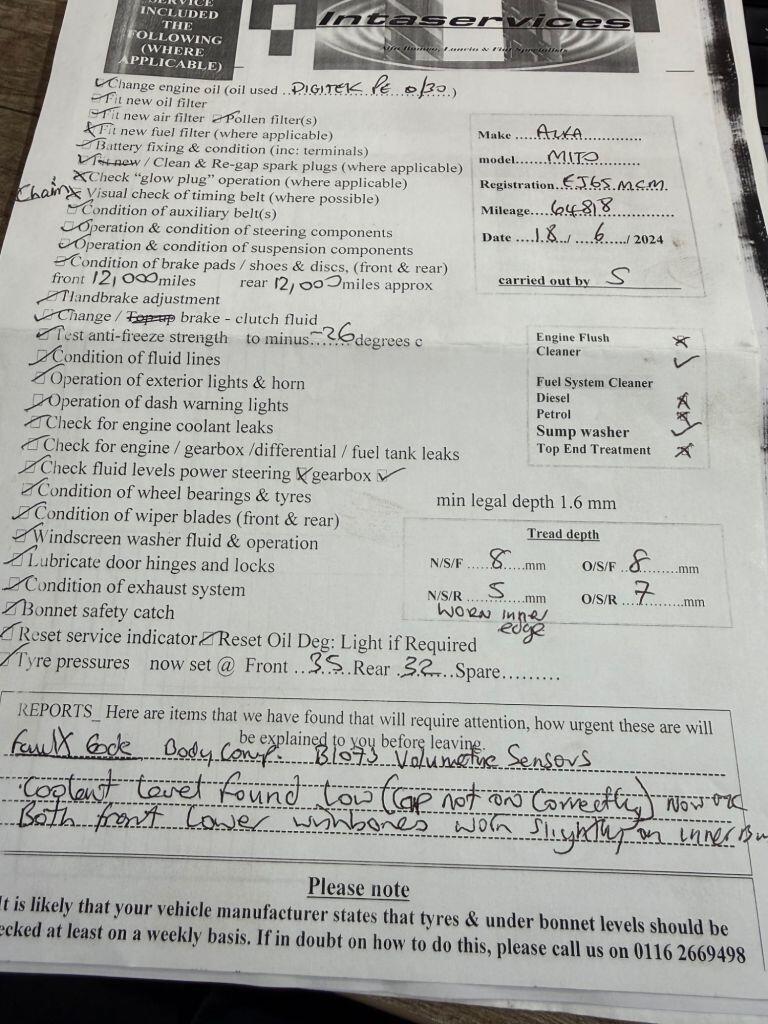 SERVICE
INCLUDED
THE
FOLLOWING
(WHERE
APPLICABLE)
Intaservices
Alfa Romeo, Lancia & Fiat Specialists
Change engine oil (oil used ..DIGITEK PE 0/30.)
Fit new oil filter
Fit new air filter Pollen filter(s)
Fit new fuel filter (where applicable)
Battery fixing & condition (inc: terminals)
Fit new / Clean & Re-gap spark plugs (where applicable)
Check "glow plug" operation (where applicable)
Chain Visual check of timing belt (where possible)
Condition of auxiliary belt(s)
Operation & condition of steering components
Operation & condition of suspension components
Condition of brake pads / shoes & discs, (front & rear)
front 12,000 miles rear 12,000 miles approx
Handbrake adjustment
Change / Top up brake - clutch fluid
Test anti-freeze strength to minus...-36...degrees c
Condition of fluid lines
Operation of exterior lights & horn
Operation of dash warning lights
Check for engine coolant leaks
Check for engine / gearbox /differential / fuel tank leaks
Check fluid levels power steering gearbox
Condition of wheel bearings & tyres
Condition of wiper blades (front & rear)
Windscreen washer fluid & operation
Lubricate door hinges and locks
Condition of exhaust system
Bonnet safety catch
Reset service indicator Reset Oil Deg: Light if Required
Tyre pressures now set @ Front ..35....Rear .32...Spare.........
Make ....ALFA.............
model.......MITO............
Registration..EJ65.MCM.
Mileage....64818...............
Date ....18../ ...6...../ 2024
carried out by S
Engine Flush
Cleaner
Fuel System Cleaner
Diesel
Petrol
Sump washer
Top End Treatment
min legal depth 1.6 mm
Tread depth
N/S/F .....8......mm O/S/F ..8.......mm
N/S/R .....5......mm O/S/R ...7.......mm
WORN inner
edge
REPORTS_ Here are items that we have found that will require attention, how urgent these are will
be explained to you before leaving.
Fault Code Body Comp. B1075 Volumetric Sensors
Coolant Level found Low (Cap not on Correctly) Now OK
Both front Lower wishbones worn slightly on inner
Please note
It is likely that your vehicle manufacturer states that tyres & under bonnet levels should be
ecked at least on a weekly basis. If in doubt on how to do this, please call us on 0116 2669498